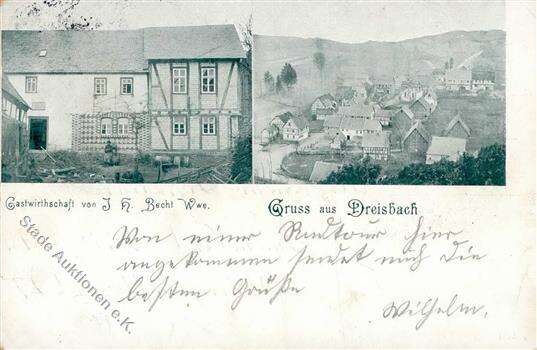 Gastwirthschaft von J. H. Becht Wwe.
Gruss aus Dreisbach
Stade Auktionen e.K.
Von einer Radtour hier
angekommen sendet noch die
besten Grüße
Wilhelm.